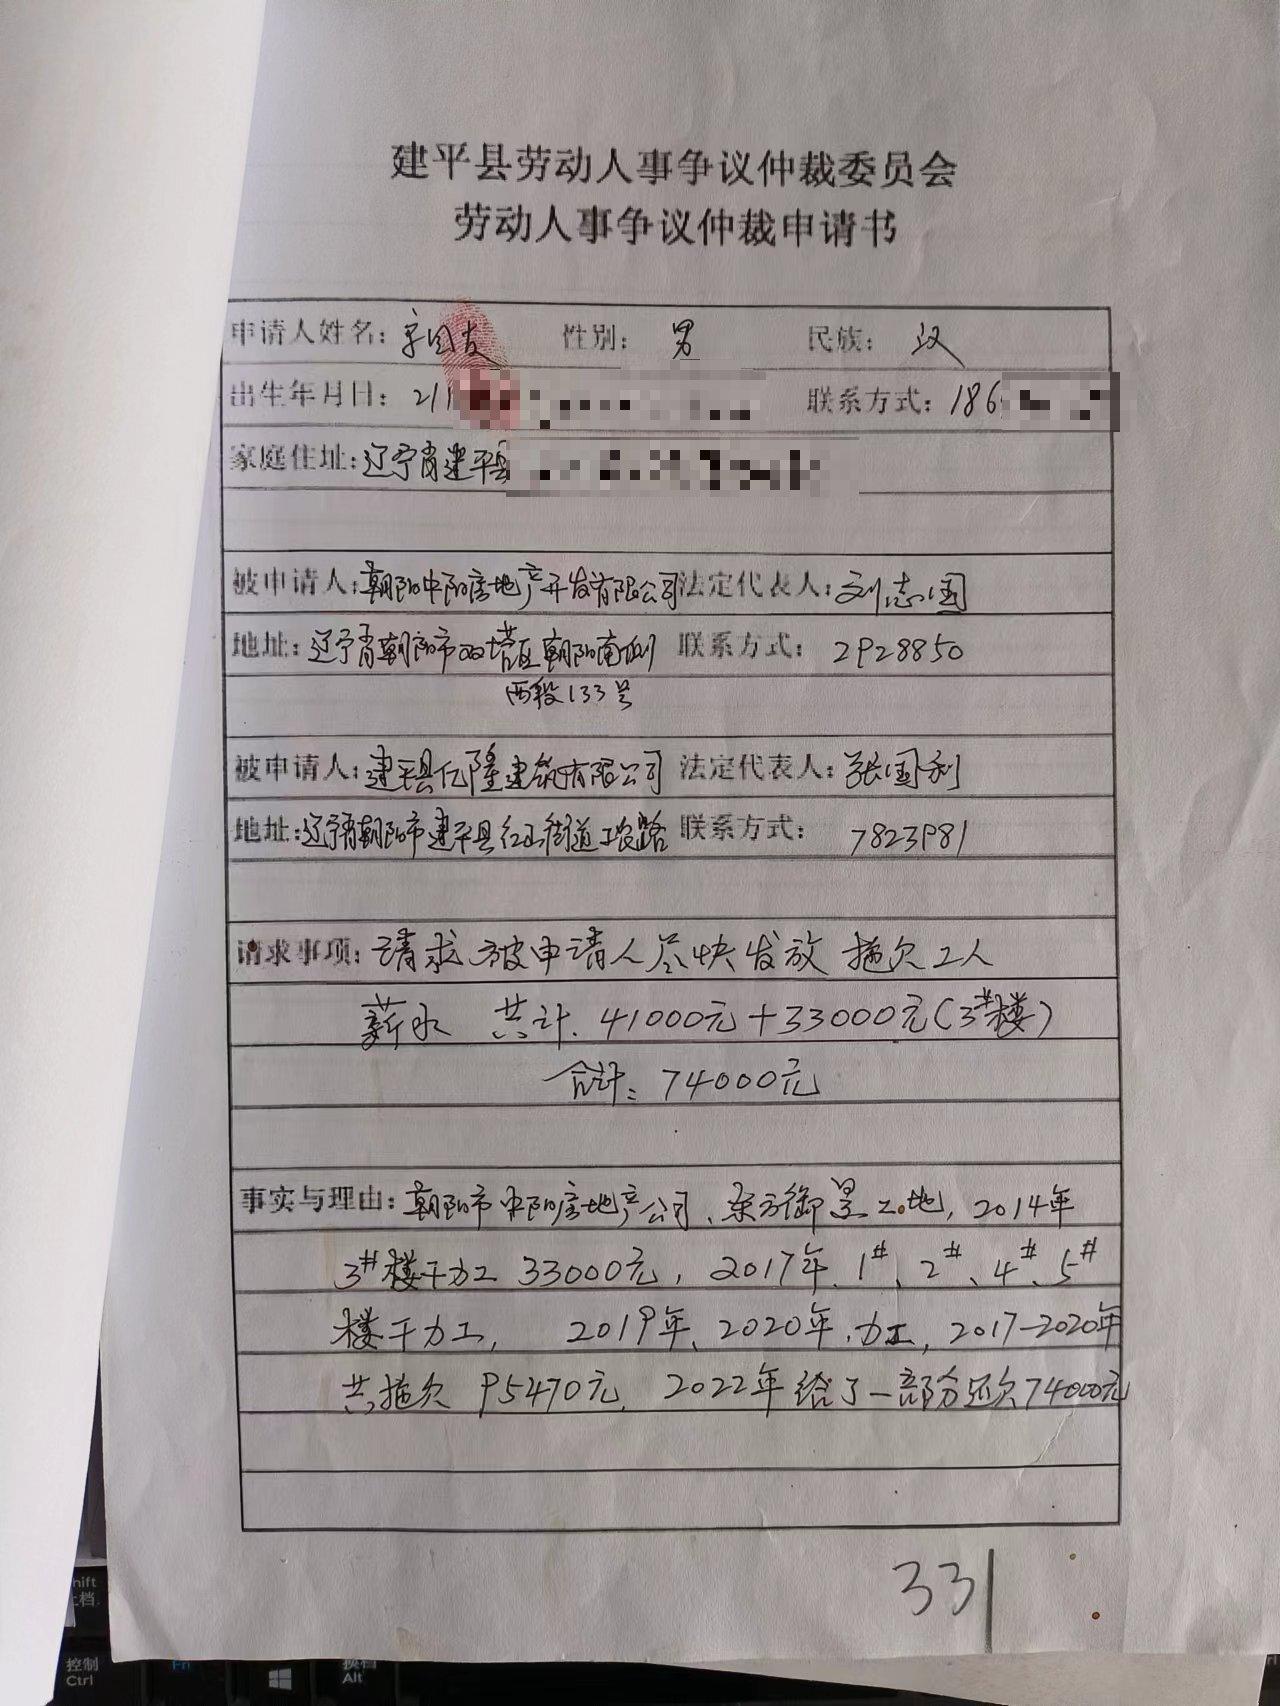 建平县劳动人事争议仲裁委员会
劳动人事争议仲裁申请书
申请人姓名: 国友 性别: 男 民族: 汉
出生年月日: 211 联系方式: 186
家庭住址: 辽宁省建平县
被申请人: 朝阳中阳房地产开发有限公司 法定代表人: 刘志国
地址: 辽宁省朝阳市双塔区朝阳南街 联系方式: 2928850
西段133号
被申请人: 建平县亿隆建筑有限公司 法定代表人: 张国利
地址: 辽宁省朝阳市建平县红山街道工农路 联系方式: 7823981
请求事项: 请求被申请人尽快发放拖欠工人
薪水 共计. 41000元+33000元(3#楼)
合计: 74000元
事实与理由: 朝阳市中阳房地产公司、东方御景工地, 2014年
3#楼干力工 33000元, 2017年、1#、2#、4#、5#
楼干力工, 2019年、2020年、力工, 2017-2020年
共拖欠 95470元, 2022年给了一部分还欠74000元
331
Shift
上档
控制
Ctrl
Fn
换档
Alt